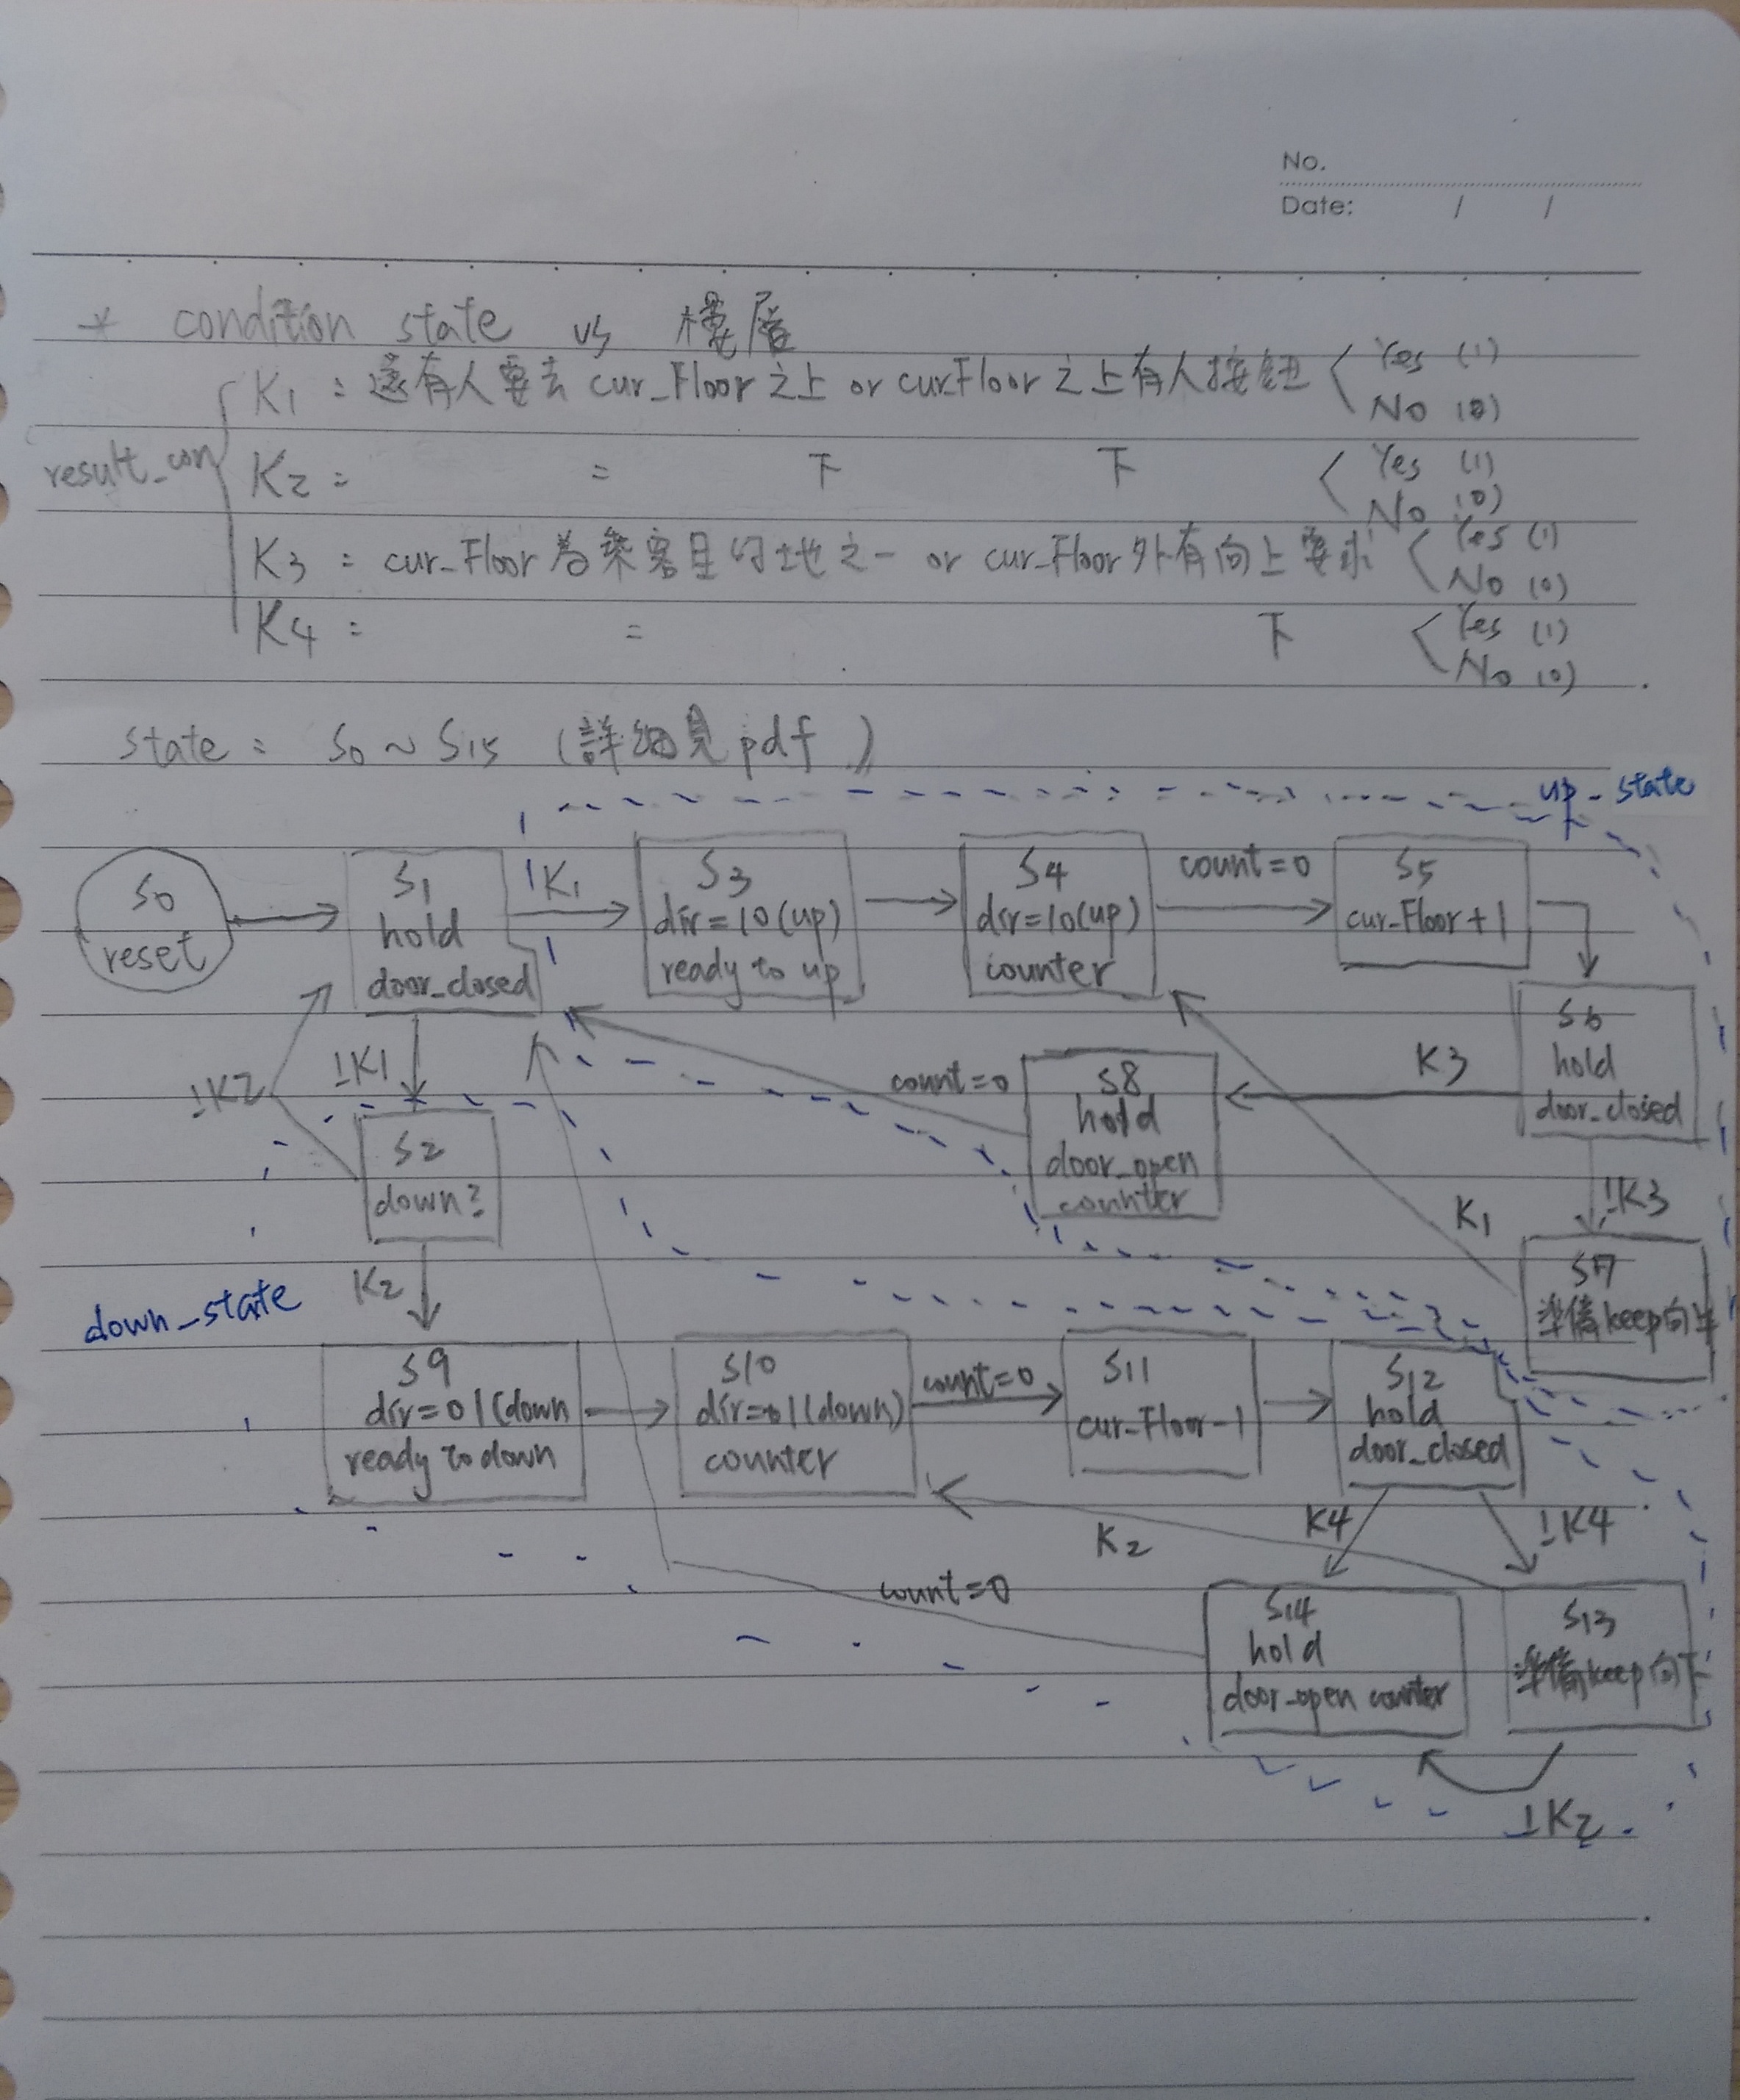 No.
Date: / /
* condition state vs 樓層
result_con
K1 : 還有人要去 cur_Floor 之上 or cur_Floor 之上有人按鈕 < Yes (1)
No (0)
K2 : = 下 下 < Yes (1)
No (0)
K3 : cur_Floor 為乘客目的地之一 or cur_Floor 外有向上要求 < Yes (1)
No (0)
K4 : = 下 < Yes (1)
No (0)
state : S0 ~ S15 (詳細見pdf )
up_state
S0
reset
S1
hold
door_closed
K1
S3
dir=10(up)
ready to up
S4
dir=10(up)
counter
count=0
S5
cur_Floor+1
S6
hold
door_closed
K3
S8
hold
door_open
counter
count=0
!K1
!K2
S2
down?
!K3
K1
S7
準備keep向上
K2
down_state
S9
dir=01(down
ready to down
S10
dir=01(down)
counter
count=0
S11
cur_Floor-1
S12
hold
door_closed
K4
!K4
K2
count=0
S14
hold
door_open counter
S13
準備keep向下
!K2